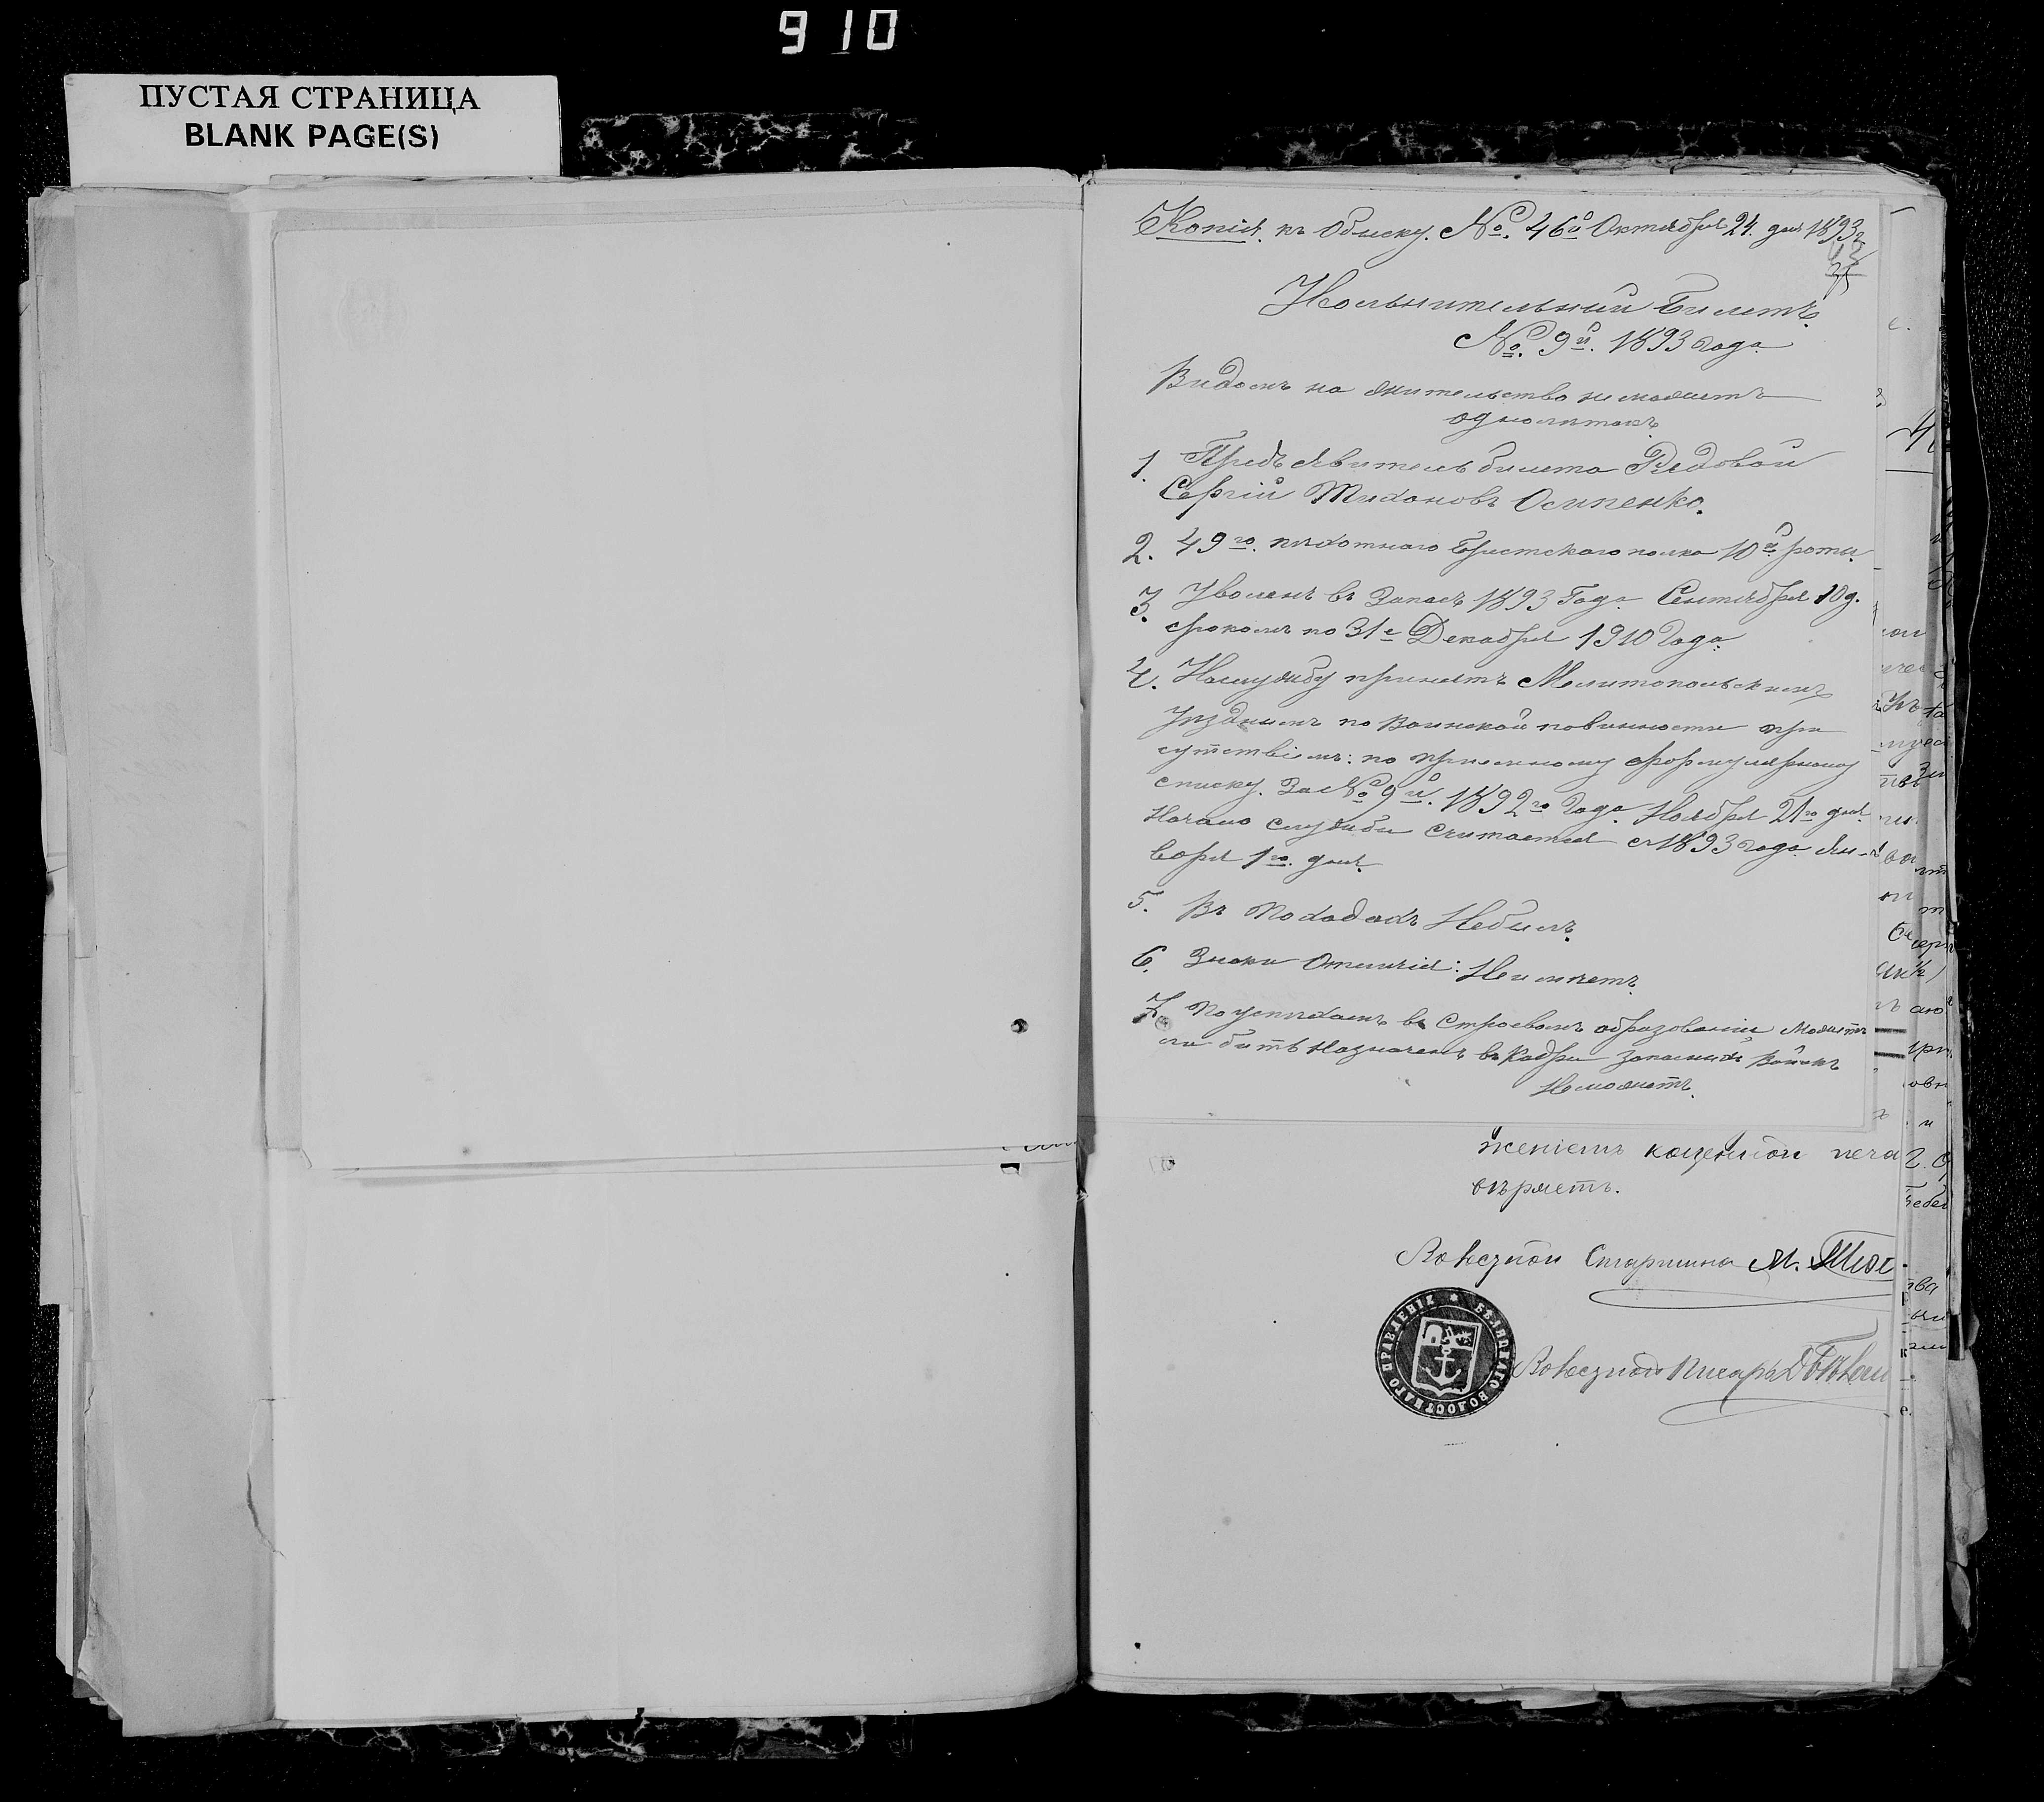 910
ПУСТАЯ СТРАНИЦА
BLANK PAGE(S)
Копія. къ Обыску. №. 46й Октября 24. дня 1893 г.
Увольнительный Билетъ.
№. 9й. 1893 года.
Видомъ на жительство неможетъ
1. Предъявитель билета Рядовой
Сергій Тихоновъ Осипенко.
2. 49го. пѣхотнаго Брестскаго полка 10й роты.
3. Уволенъ въ Запасъ 1893 Года Сентября 10 д.
срокомъ по 31е Декабря 1910 Года.
4. Наслужбу принятъ Мелитопольскимъ
Уѣзднымъ по Воинской повинности при
сутствіемъ: по пріемному формулярному
списку. За № 9й. 1892го Года Ноября 21го дня.
Начало службы Считается съ 1893 года Ян-
варя 1го. дня.
5. Въ Походахъ Небылъ.
6. Знаки Отличія: Неимѣетъ.
7. По успѣхамъ въ Строевомъ образованіи Можетъ
ли быть Назначенъ въ Кадры запасныхъ Войскъ
Неможетъ.
женіемъ казенной печа
вѣряетъ.
Волостной Старшина М.
БѢЛЯЦКАГО ВОЛОСТНАГО ПРАВЛЕНІЯ
Волостной Писарь